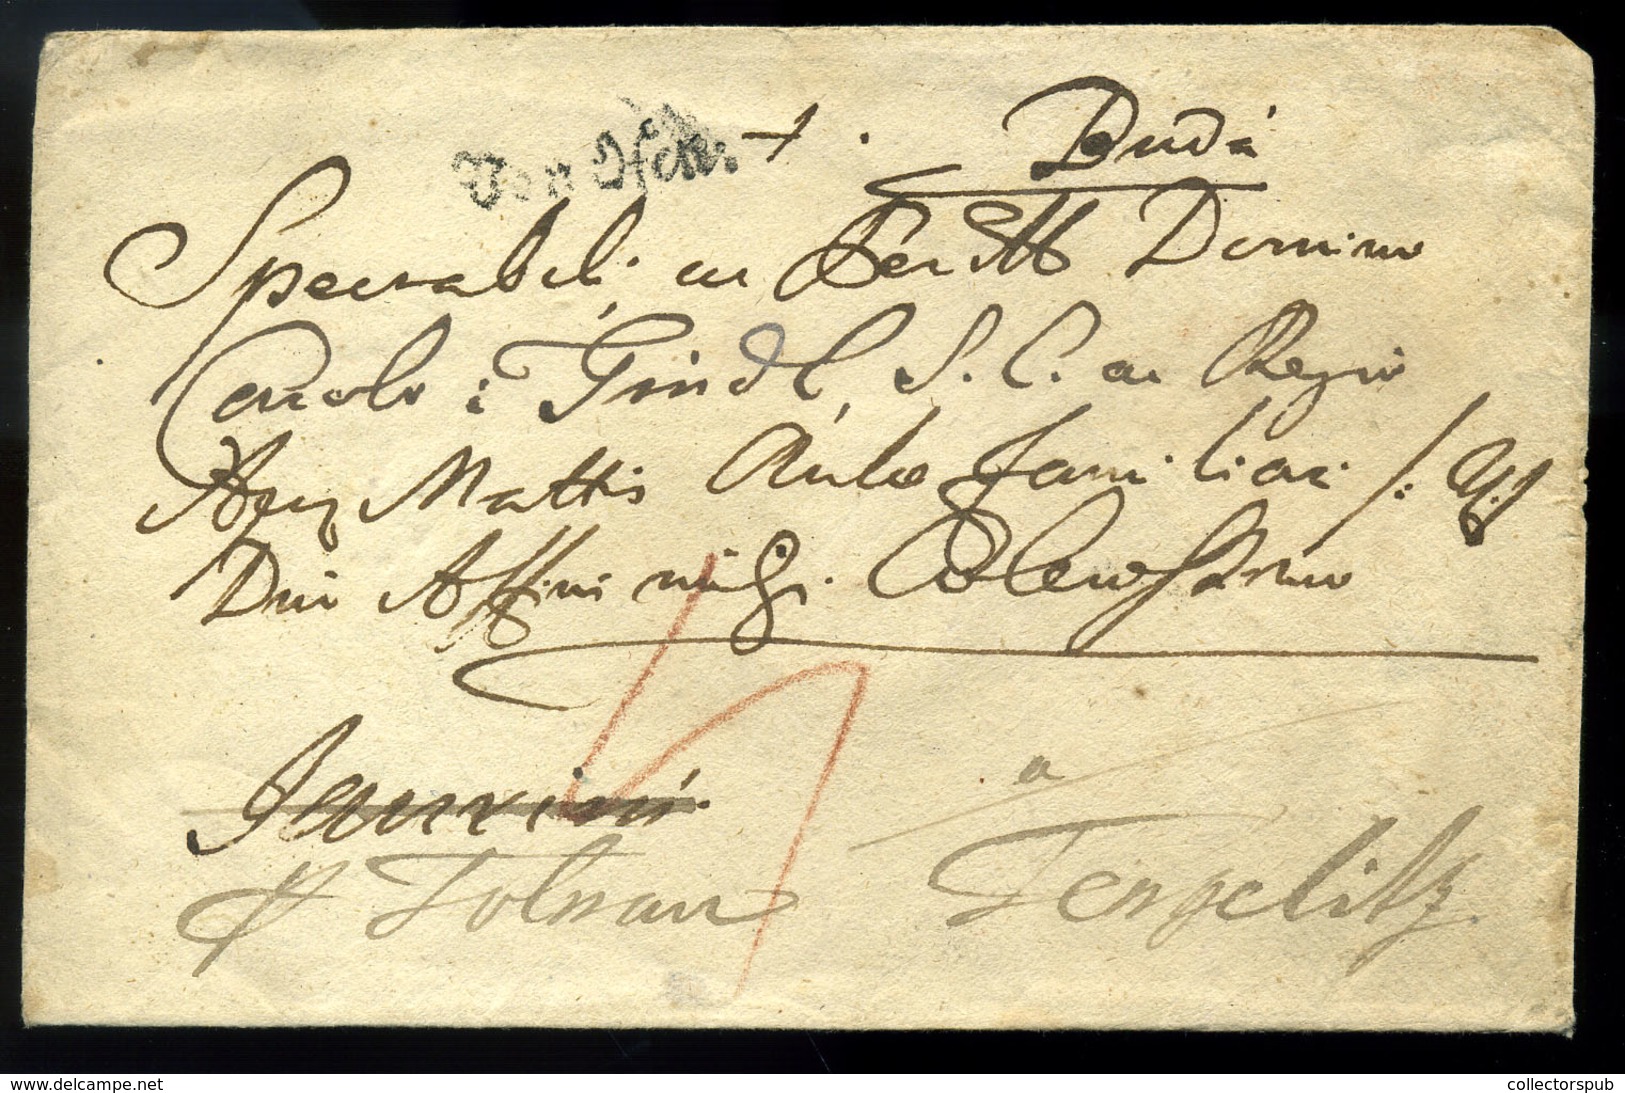 Von Ofen.
Budá
Spectabili ac Perill Domino
Carolo : Gindl, S. C. ac Regio
Mattis Aulae Familiari /:
Dno Affini mihi Colendssimo
Jaurini
a
p Tolnau Tengelitz
www.delcampe.net
collectorspub